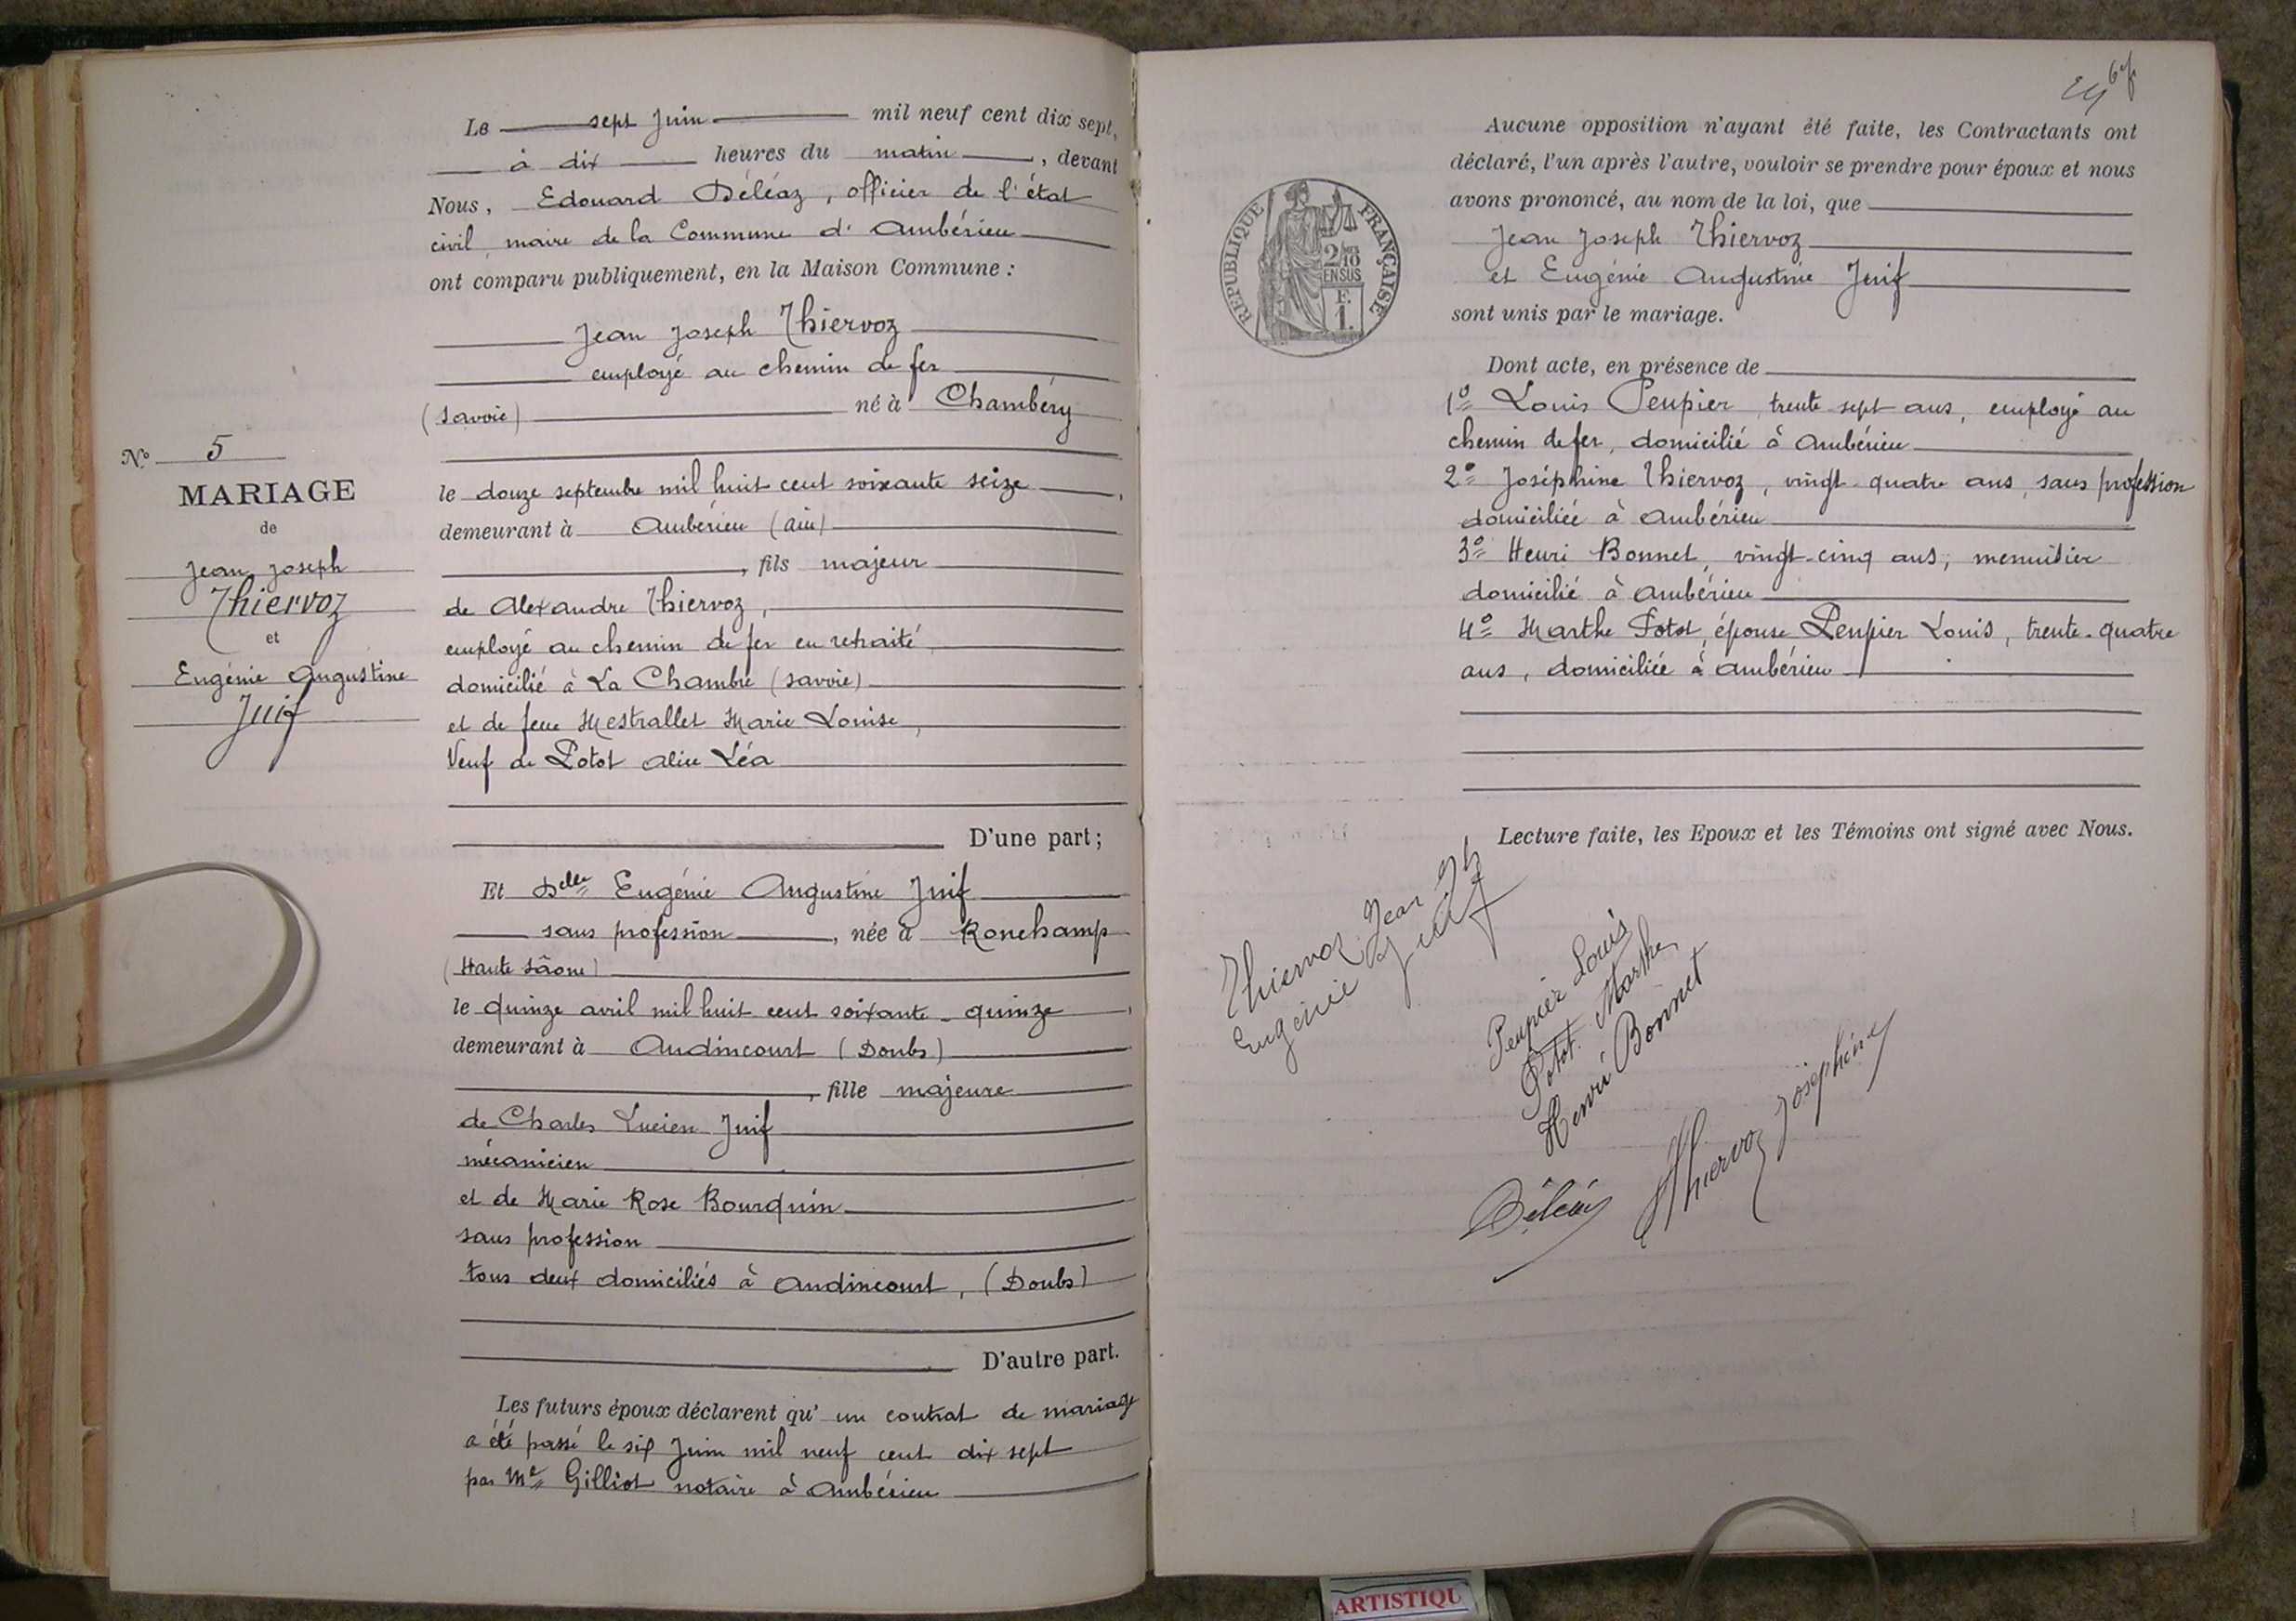 Le sept Juin mil neuf cent dix sept,
à dix heures du matin, devant
Nous, Edouard Déléaz, officier de l'état
civil, maire de la Commune d'Ambérieu
ont comparu publiquement, en la Maison Commune :
Jean Joseph Thiervoz
employé au chemin de fer
(Savoie) né à Chambéry
No 5
MARIAGE
de
Jean Joseph
Thiervoz
et
Eugénie Augustine
Juif
le douze septembre mil huit cent soixante seize,
demeurant à Ambérieu (ain)
, fils majeur
de Alexandre Thiervoz,
employé au chemin de fer en retraité,
domicilié à La Chambre (savoie)
et de feue Mestrallet Marie Louise,
Veuf de Potot Alice Léa
D'une part ;
Et Delle Eugénie Augustine Juif
sans profession, née à Ronchamp
(Haute Sâone)
le quinze avril mil huit cent soixante-quinze,
demeurant à Audincourt (Doubs)
, fille majeure
de Charles Lucien Juif
mécanicien
et de Marie Rose Bourquin
sans profession
tous deux domiciliés à Audincourt, (Doubs)
D'autre part.
Les futurs époux déclarent qu'un contrat de mariage
a été passé le six Juin mil neuf cent dix sept
par Me Gilliot notaire à Ambérieu
Aucune opposition n'ayant été faite, les Contractants ont
déclaré, l'un après l'autre, vouloir se prendre pour époux et nous
avons prononcé, au nom de la loi, que
Jean Joseph Thiervoz
et Eugénie Augustine Juif
sont unis par le mariage.
REPUBLIQUE FRANÇAISE
2/10
EN SUS
F.
1.
Dont acte, en présence de
1o Louis Peupier, trente sept ans, employé au
chemin de fer, domicilié à Ambérieu
2o Joséphine Thiervoz, vingt-quatre ans, sans profession
domiciliée à Ambérieu
3o Henri Bonnet, vingt-cinq ans, menuisier
domicilié à Ambérieu
4o Marthe Potot, épouse Peupier Louis, trente-quatre
ans, domiciliée à Ambérieu
Lecture faite, les Epoux et les Témoins ont signé avec Nous.
Thiervoz Jean
Eugénie Juif
Peupier Louis
Potot Marthe
Henri Bonnet
Thiervoz Joséphine
Déléaz
ARTISTIQU